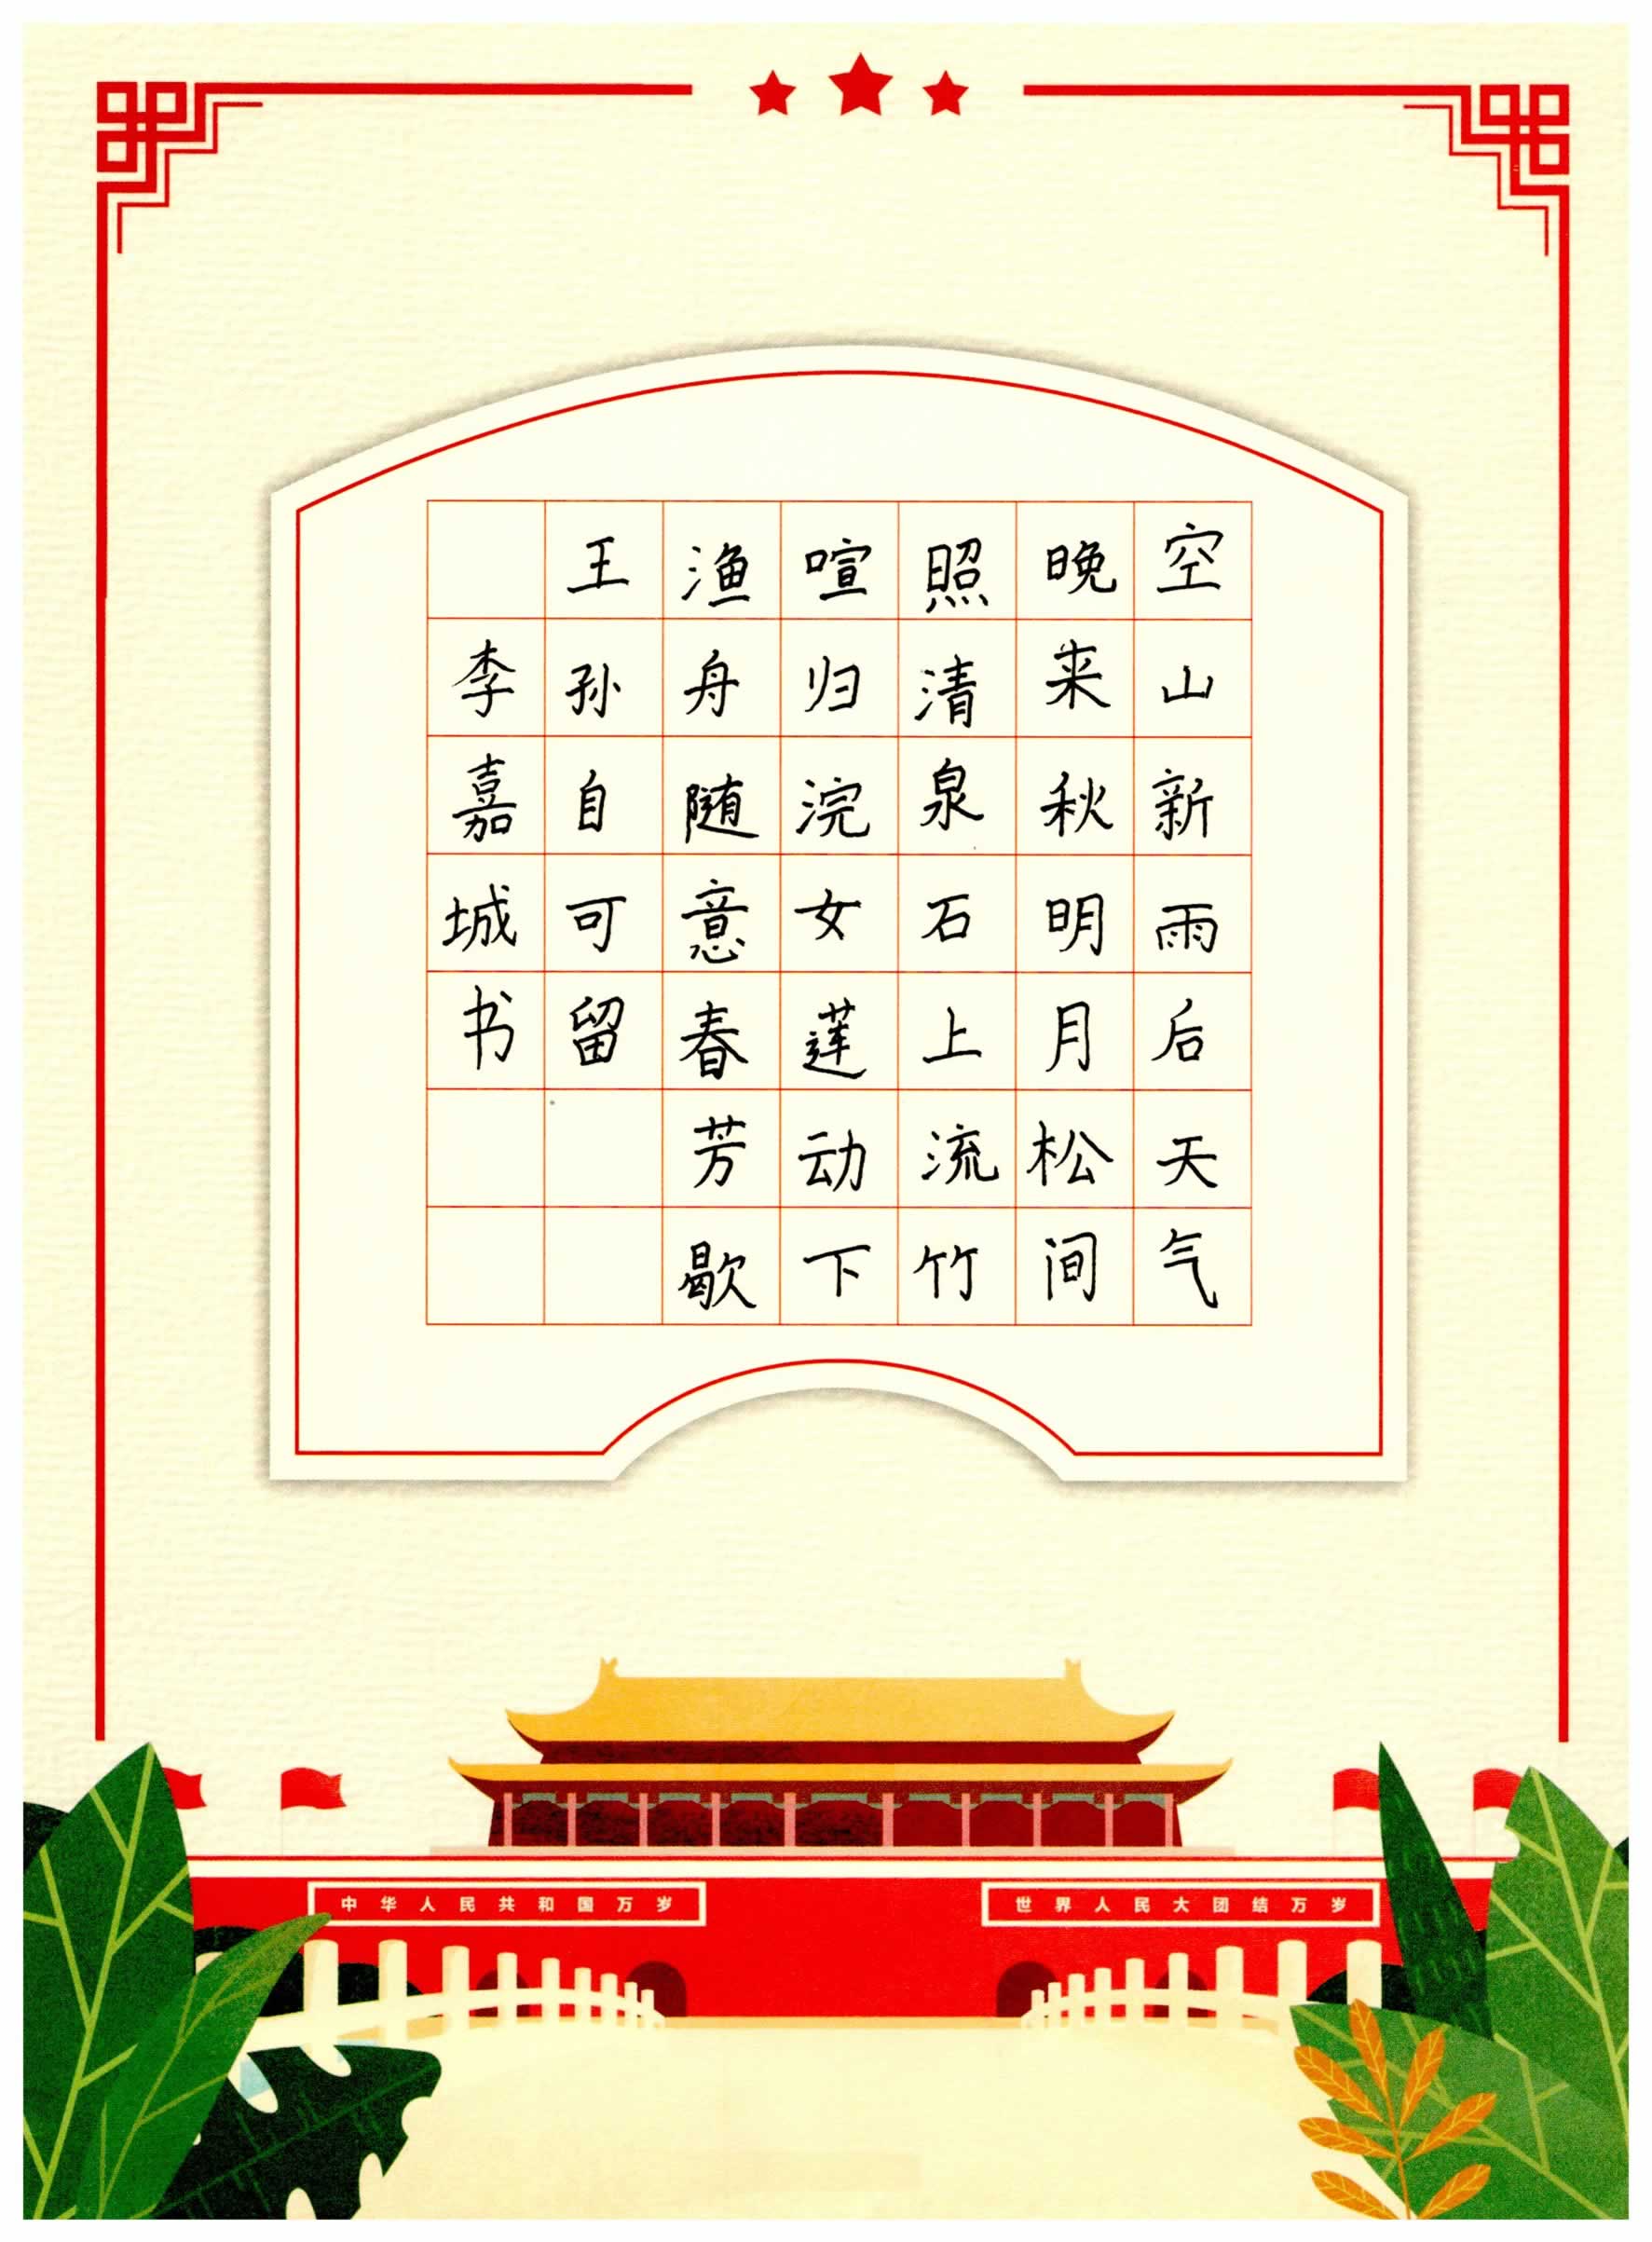 空山新雨后天气
晚来秋明月松间
照清泉石上流竹
喧归浣女莲动下
渔舟随意春芳歇
王孙自可留
李嘉城书
中华人民共和国万岁
世界人民大团结万岁